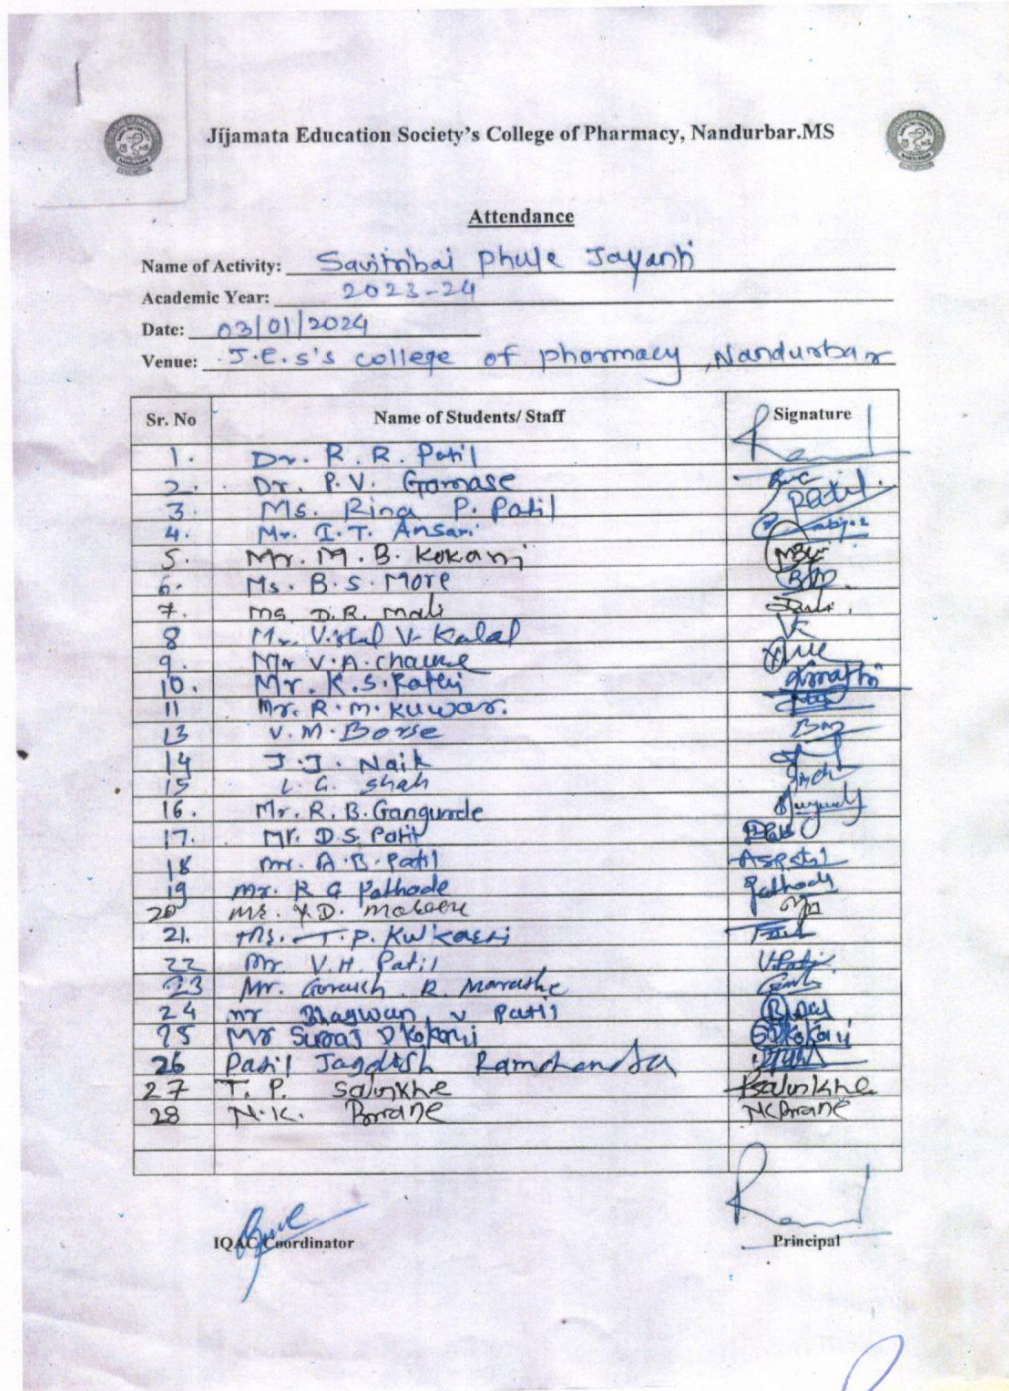 Jijamata Education Society's College of Pharmacy, Nandurbar.MS
Attendance
Name of Activity: Savitribai Phule Jayanti
Academic Year: 2023-24
Date: 03/01/2024
Venue: J.E.S's college of pharmacy, Nandurbar
Sr. No Name of Students/ Staff Signature
1. Dr. R. R. Patil
2. Dr. P. V. Gomase
3. Ms. Rina P. Patil Patil
4. Mr. I. T. Ansari
5. Mr. M. B. Kokani
6. Ms. B. S. More
7. Ms. D. R. Mali
8 Mr. Vishal V. Kalal VK
9. Mr V. A. chaure
10. Mr. K. S. Rathi
11 Mr. R. M. Kuwar.
13 V. M. Borse
14 J. J. Naik
15 L. G. Shah
16. Mr. R. B. Gangurde
17. Mr. D. S. Patil
18 Mr. A. B. Patil
19 Mr. R G Pathade Pathade
20 Y. D.
21. Ms. T. P. Kulkarni
22 Mr. V. H. Patil V.Patil
23 Mr. R. Marashe
24 mr Bhagwan v Patil
25 Mr Suraj D Kokani SDKokani
26 Patil Jagdish Ramchandra
27 T. P. Salunkhe Salunkhe
28 N. K.
IQAC Coordinator Principal